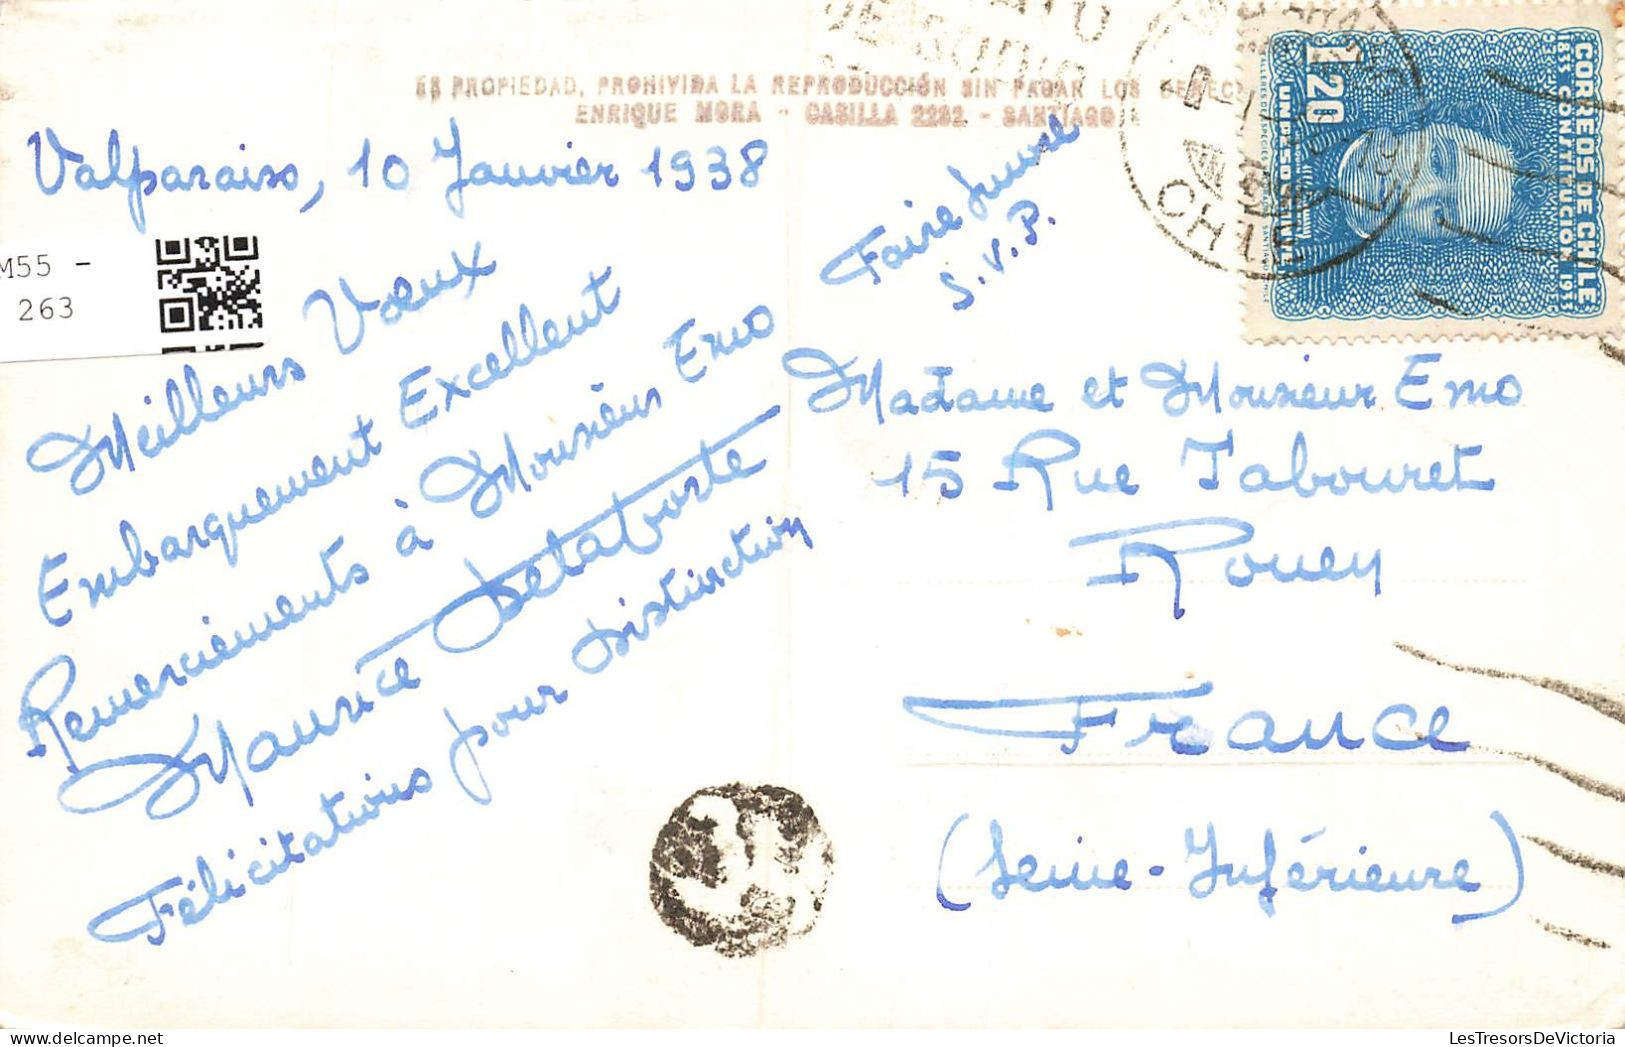 ES PROPIEDAD, PROHIVIDA LA REPRODUCCIÓN SIN PAGAR LOS
ENRIQUE MORA - CASILLA 2232 - SANTIAGO
Valparaiso, 10 Janvier 1938
M55 -
263
Meilleurs Vœux
Embarquement Excellent
Remerciements à Monsieur Emo
Maurice Delaborte
Félicitations pour Distinction
Faire suivre
S.V.P.
Madame et Monsieur Emo
15 Rue Tabouret
Rouen
France
(Seine-Inférieure)
CORREOS DE CHILE
1833 CONSTITUCION 1933
1.20
CHILE
LesTresorsDeVictoria